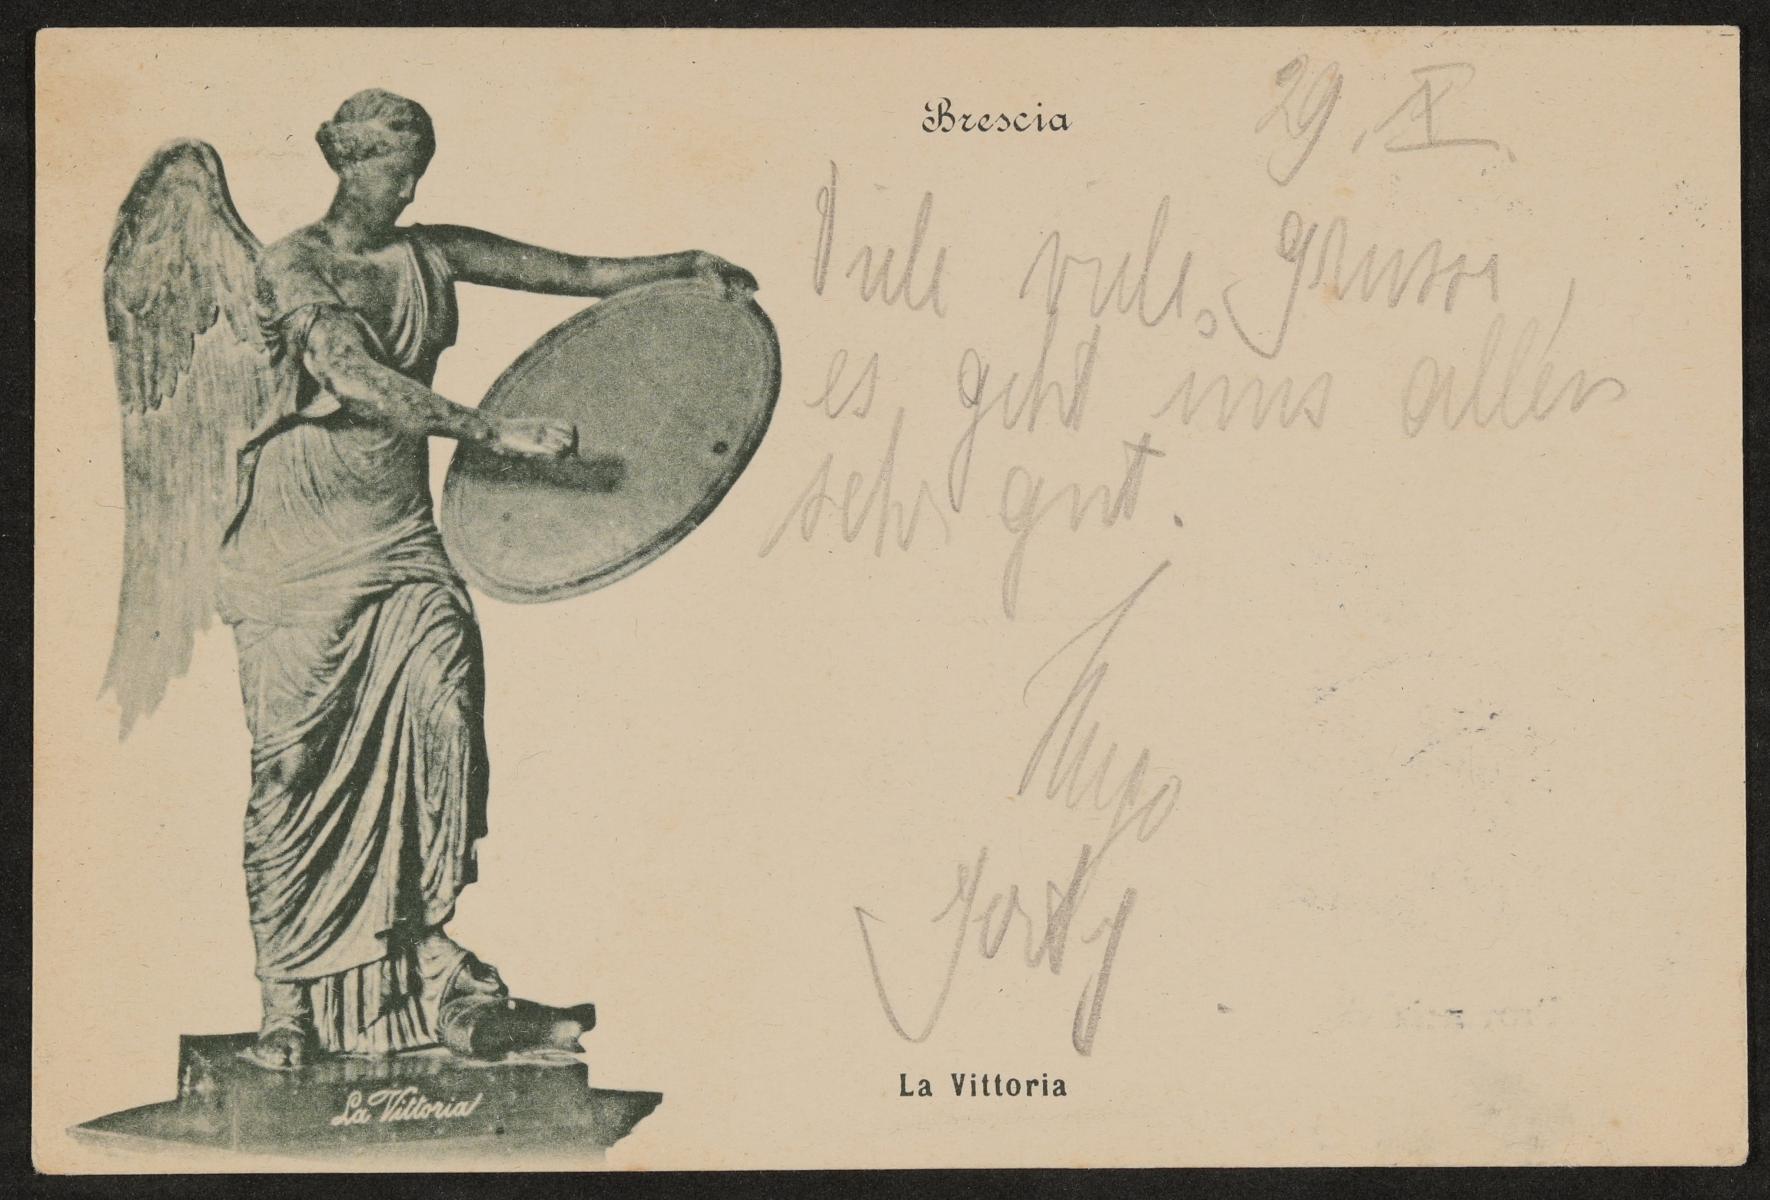 Brescia
29. X.
Viele viele Grüsse,
es geht uns allen
sehr gut.
Hugo
La Vittoria
La Vittoria